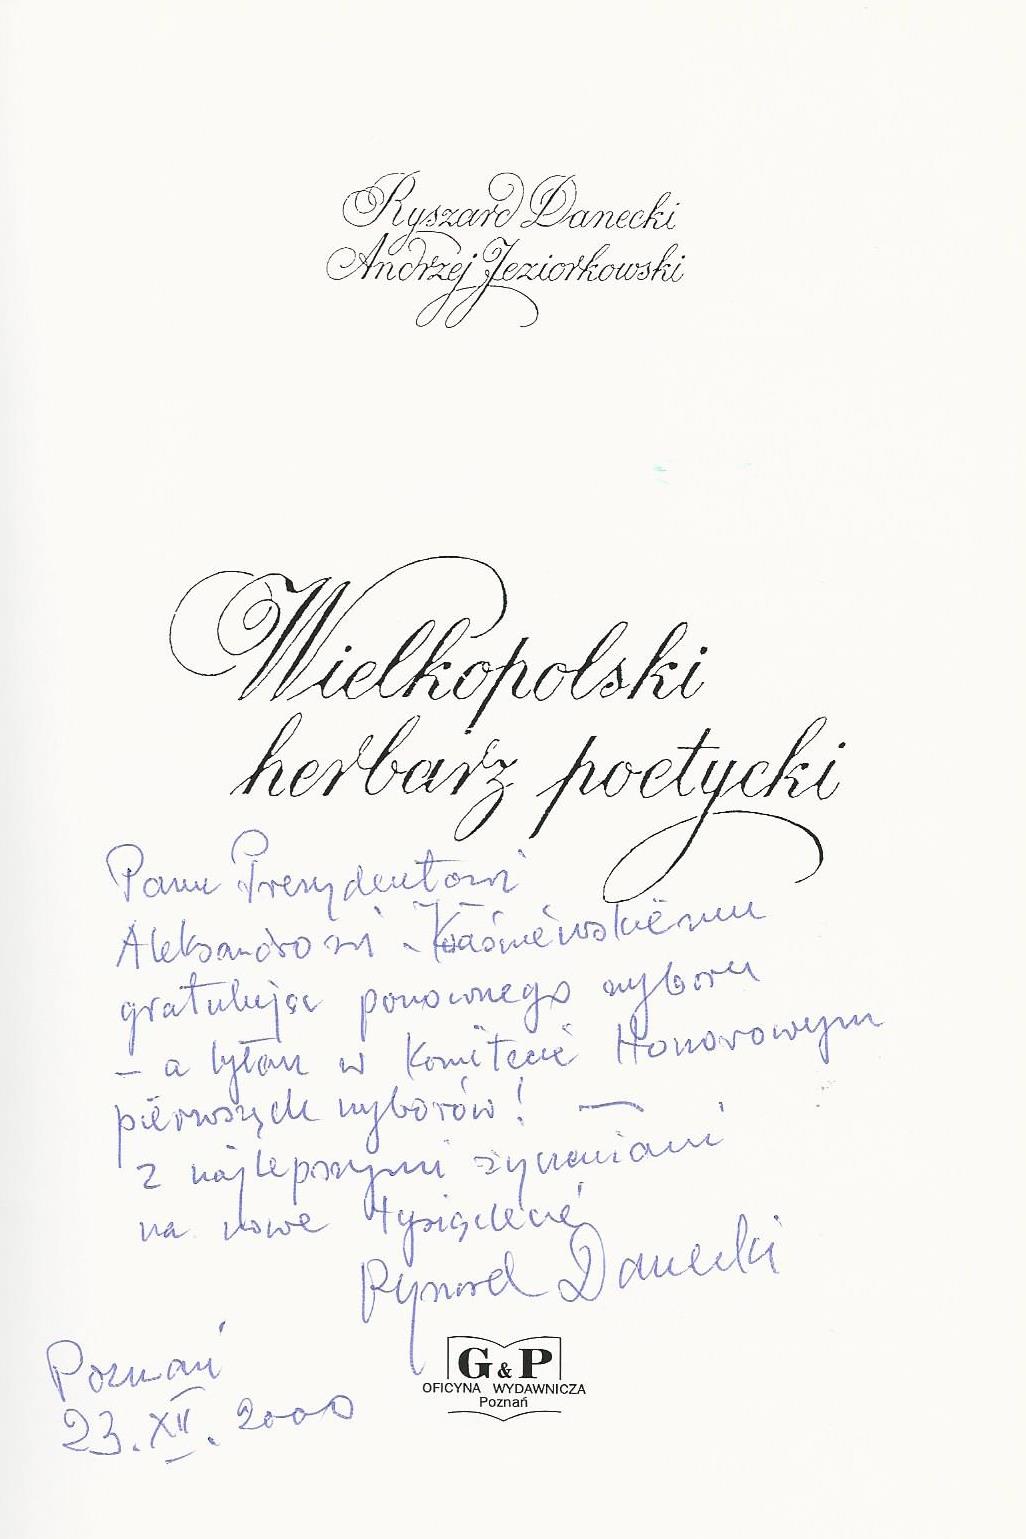 Ryszard Danecki
Andrzej Jeziorkowski
Wielkopolski
herbarz poetycki
Panu Prezydentowi
Aleksandrowi Kwaśniewskiemu
gratulując ponownego wyboru
– a byłem w Komitecie Honorowym
pierwszych wyborów! —
z najlepszymi życzeniami
na nowe tysiąclecie
Ryszard Danecki
G&P
OFICYNA WYDAWNICZA
Poznań
Poznań
23.XII.2000